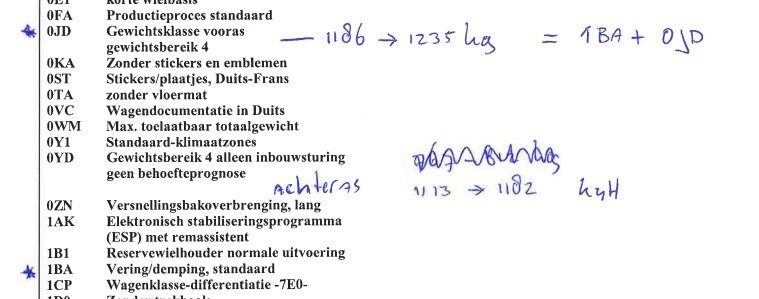 0E1 korte wielbasis
0FA Productieproces standaard
0JD Gewichtsklasse vooras — 1186 → 1235 kg = 1BA + 0JD
gewichtsbereik 4
0KA Zonder stickers en emblemen
0ST Stickers/plaatjes, Duits-Frans
0TA zonder vloermat
0VC Wagendocumentatie in Duits
0WM Max. toelaatbaar totaalgewicht
0Y1 Standaard-klimaatzones
0YD Gewichtsbereik 4 alleen inbouwsturing
geen behoefteprognose
Achteras 1113 → 1182
0ZN Versnellingsbakoverbrenging, lang
1AK Elektronisch stabiliseringsprogramma
(ESP) met remassistent
1B1 Reservewielhouder normale uitvoering
1BA Vering/demping, standaard
1CP Wagenklasse-differentiatie -7E0-